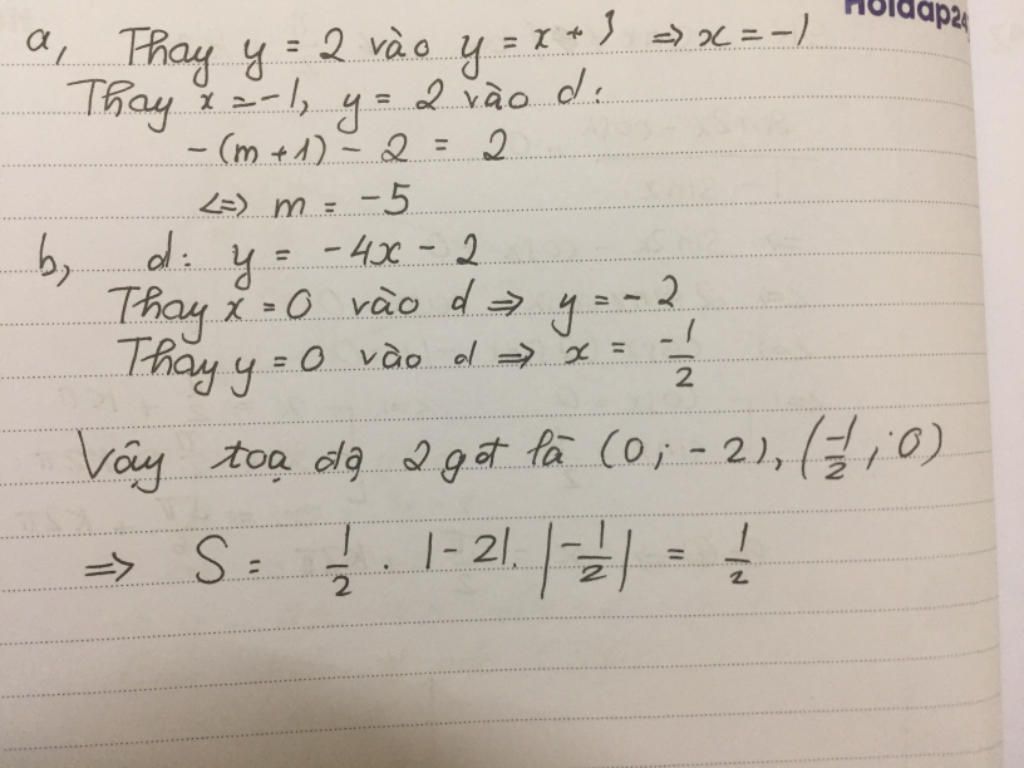 Hoidap24
a, Thay y = 2 vào y = x + 3 ⇒ x = -1
Thay x = -1, y = 2 vào d:
-(m+1) - 2 = 2
<=> m = -5
b, d: y = -4x - 2
Thay x = 0 vào d ⇒ y = -2
Thay y = 0 vào d ⇒ x = -1/2
Vậy toạ dộ 2 gđt là (0; -2), (-1/2; 0)
⇒ S = 1/2 . |-2|. |-1/2| = 1/2